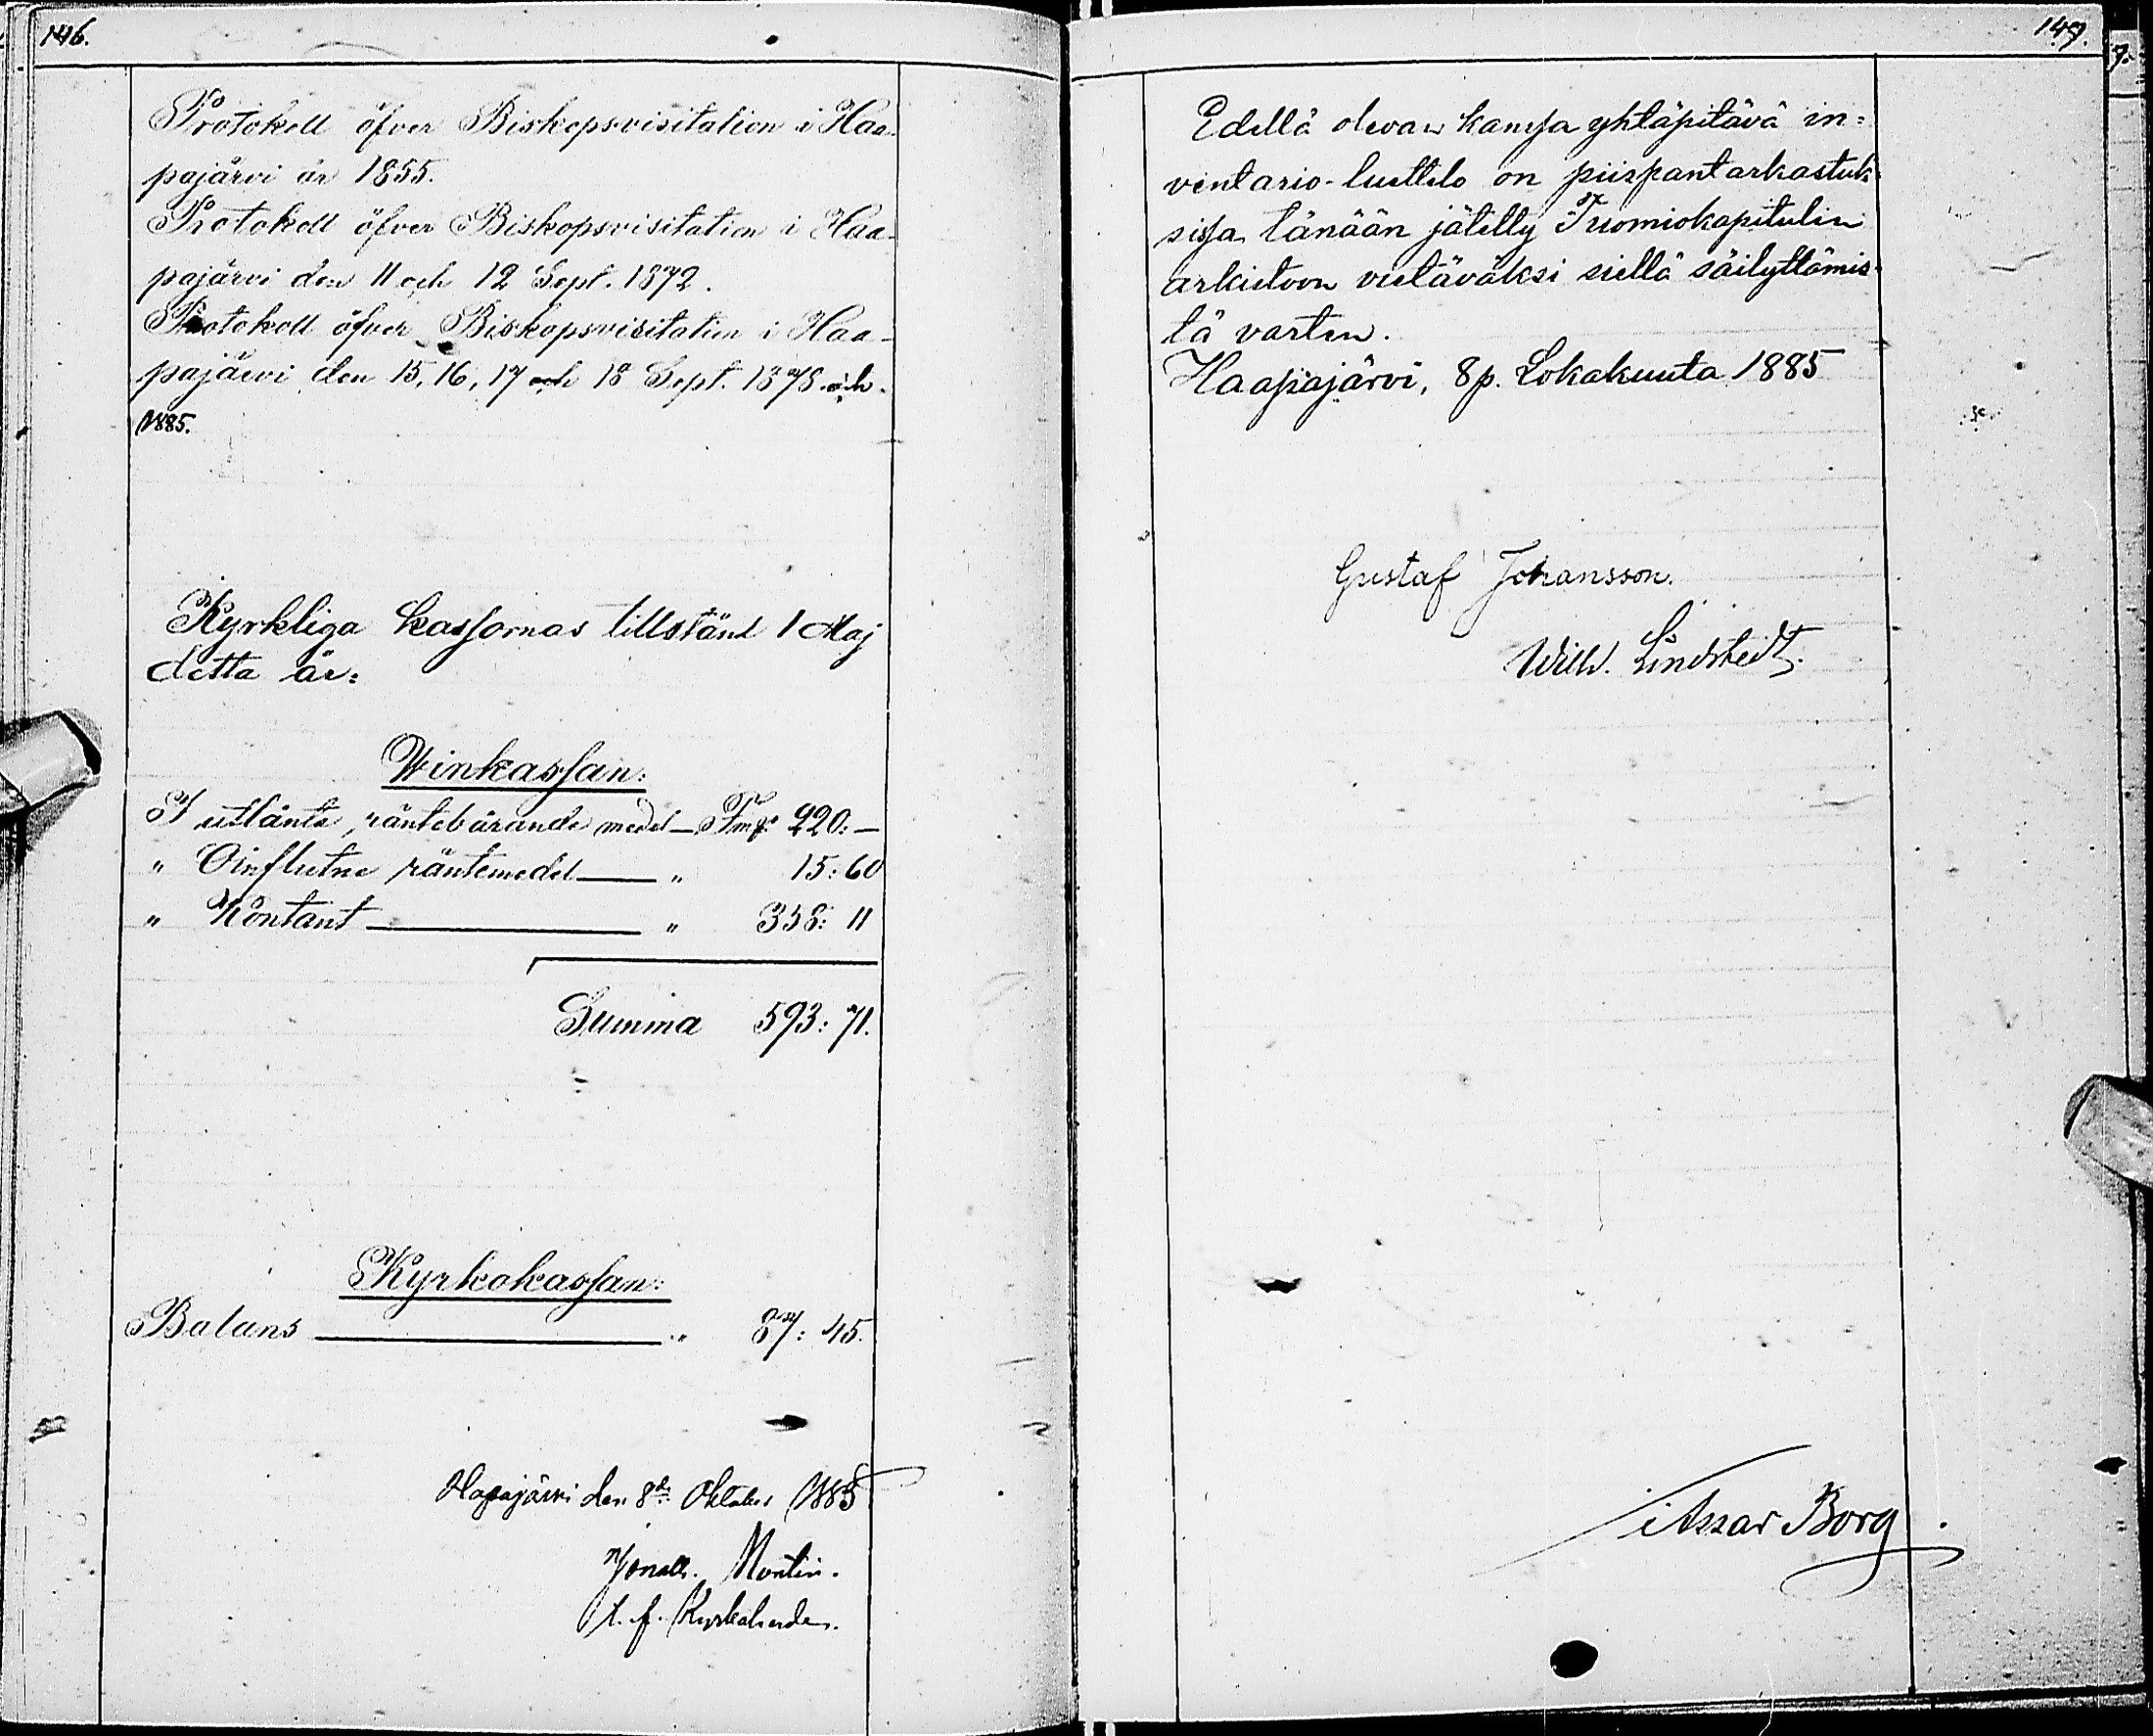 146.
Protokoll öfver Biskopsvisitation i Haa-
pajärvi år 1855.
Protokoll öfver Biskopsvisitation i Haa-
pajärvi den 11 och 12 Sept. 1872.
Protokoll öfver Biskopsvisitation i Haa-
pajärvi den 15, 16, 17 och 18 Sept. 1878 och.
1885.
Kyrkliga kassornas tillstånd 1 Maj
detta år:
Winkassan:
I utlånta, räntebärande medel — Fmk 220: —
" Oinflutne räntemedel — " 15: 60
" Kontant — " 358: 11
Summa 593: 71.
Kyrkokassan:
Balans — " 87: 45.
Hapajärvi den 8de Oktober 1885
Montin.
t. f. Kyrkoherde.
147.
Edellä olevan kanssa yhtäpitävä in=
ventario-luettelo on piispantarkastuk-
sissa tänään jätetty Tuomiokapitulin
arkistoon vietäväksi siellä säilyttämis-
tä varten.
Haapajärvi, 8 p. Lokakuuta 1885
Gustaf Johansson.
Wilh. Lindstedt.
Assar Borg